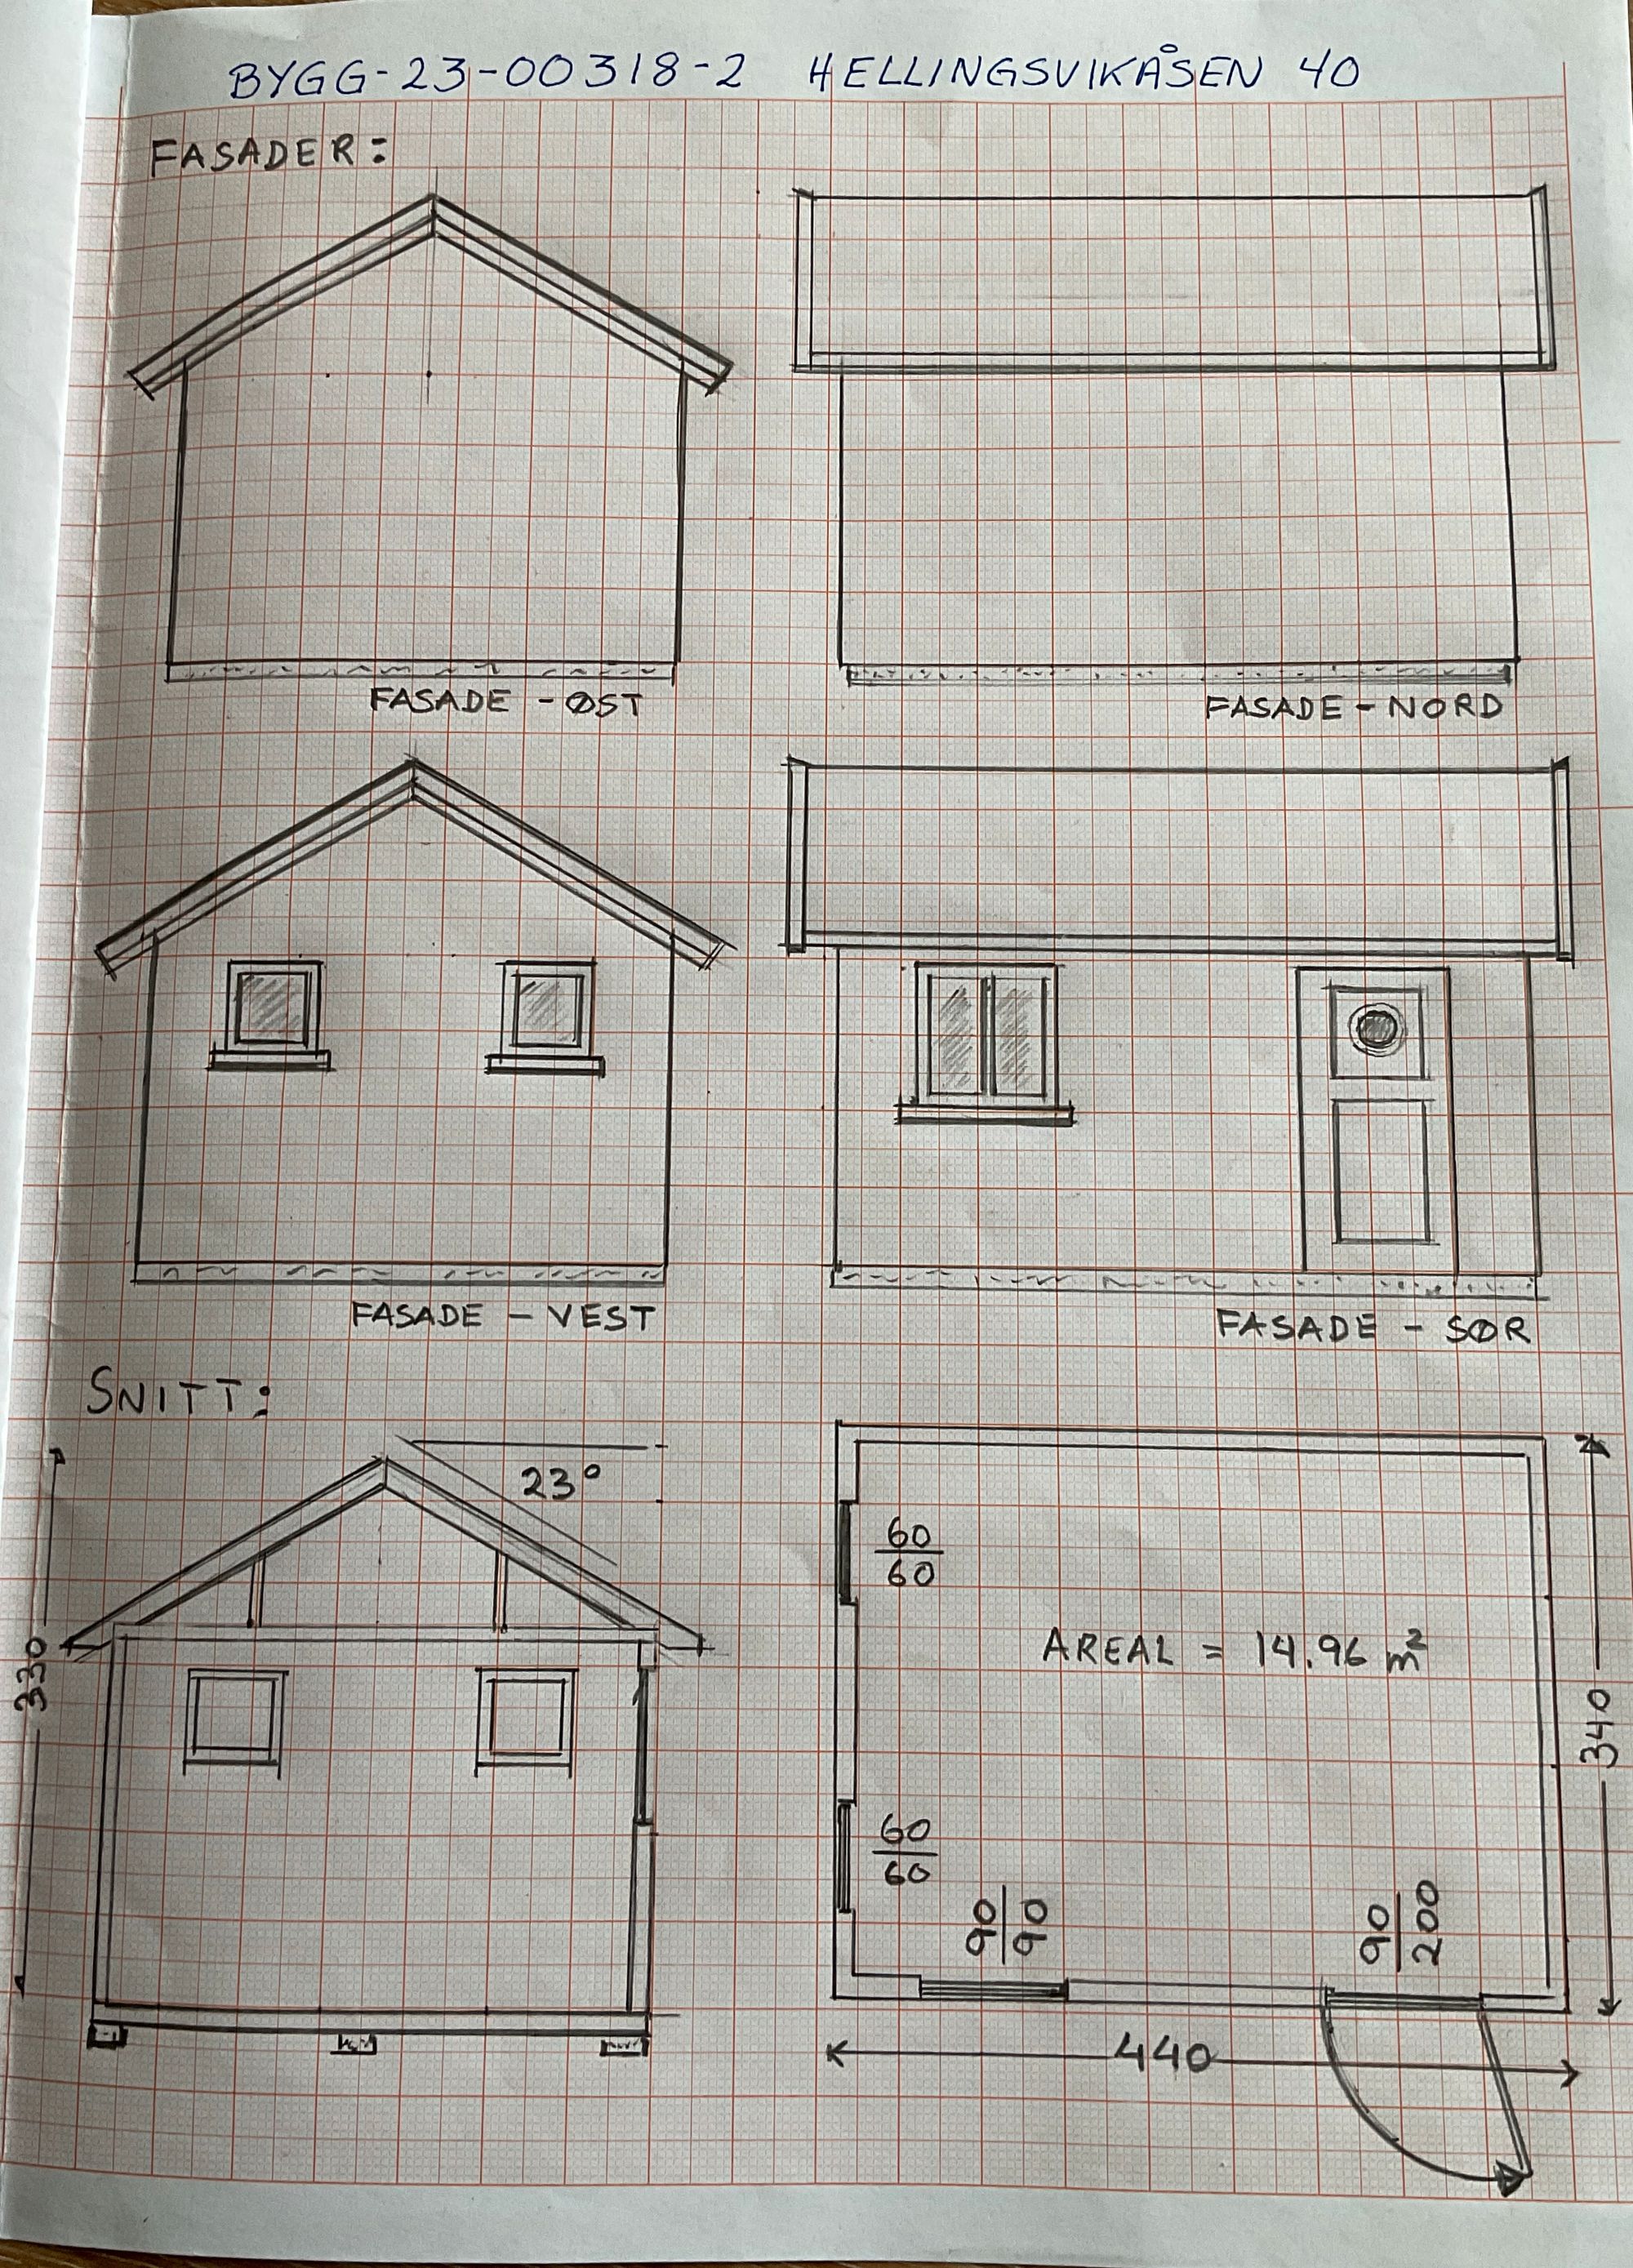 BYGG-23-00318-2 HELLINGSVIKÅSEN 40
FASADER:
FASADE - ØST
FASADE - NORD
FASADE - VEST
FASADE - SØR
SNITT:
23°
330
60
60
AREAL = 14.96 m²
340
60
60
90
90
90
200
440